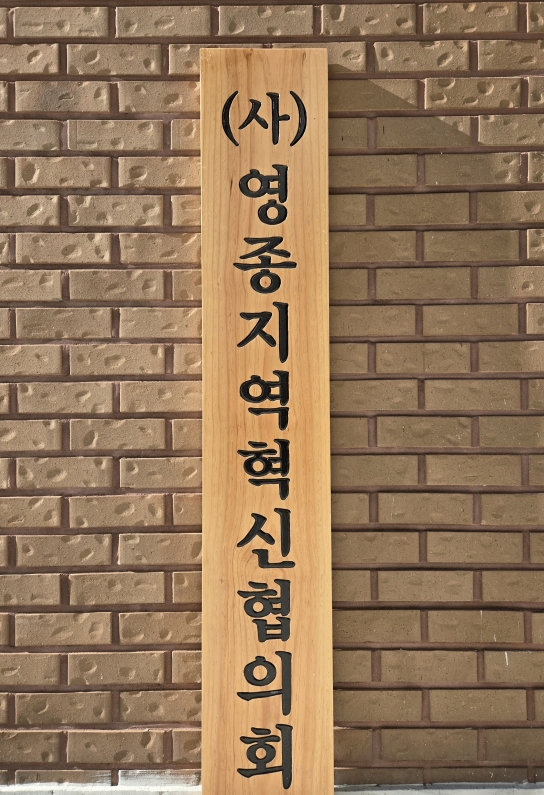 (사)영종지역혁신협의회